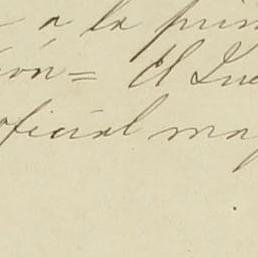 a la prim
ión= El Lue
oficial may